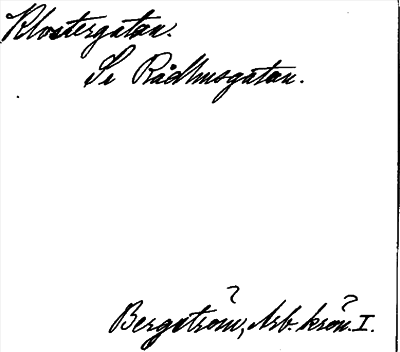 Klostergatan.
Se Rådhusgatan.
Bergström, Arb. krön. I.